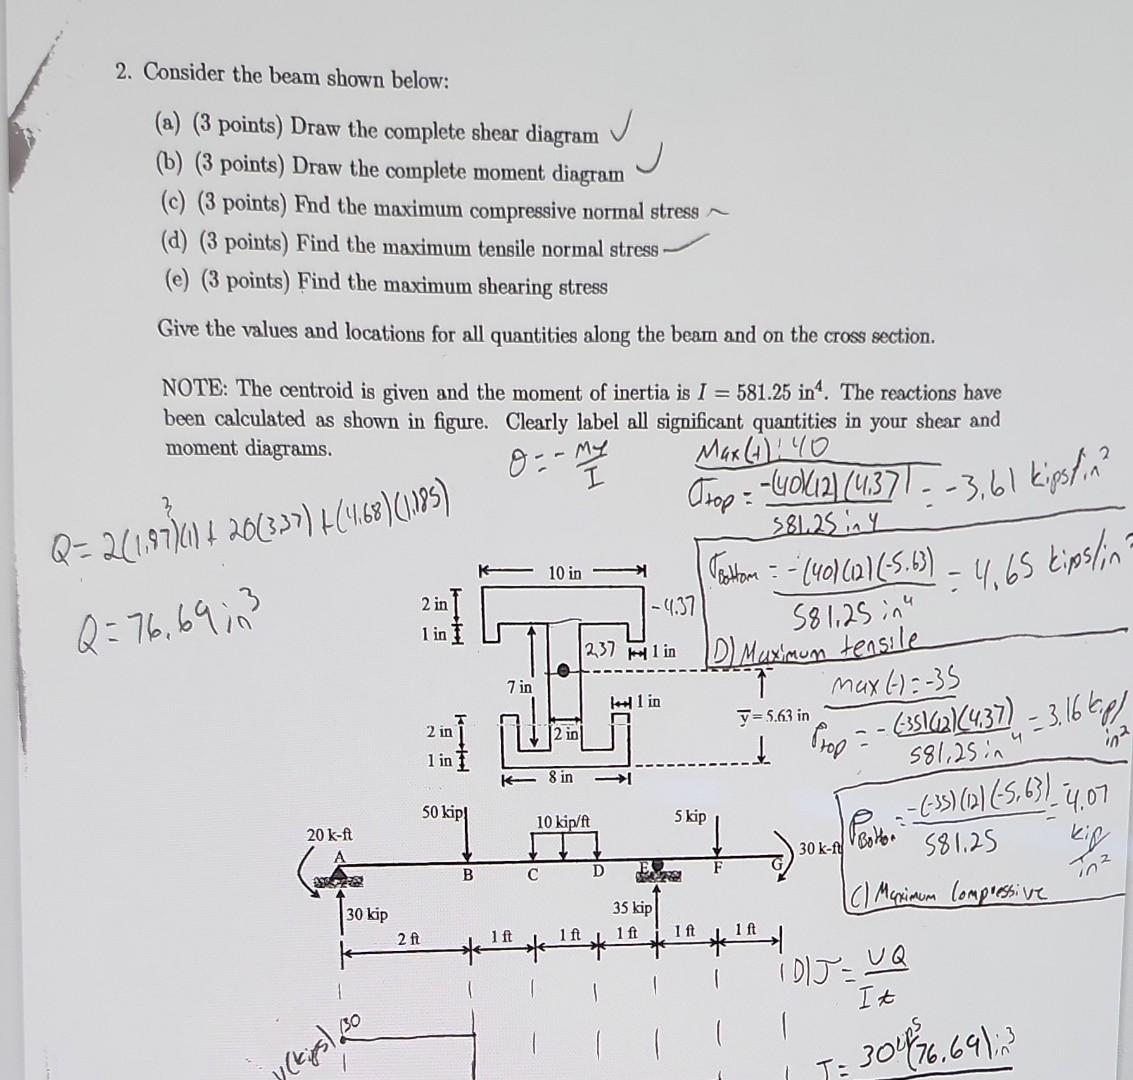 2. Consider the beam shown below:
(a) (3 points) Draw the complete shear diagram
(b) (3 points) Draw the complete moment diagram
(c) (3 points) Fnd the maximum compressive normal stress
(d) (3 points) Find the maximum tensile normal stress
(e) (3 points) Find the maximum shearing stress
Give the values and locations for all quantities along the beam and on the cross section.
NOTE: The centroid is given and the moment of inertia is I = 581.25 in⁴. The reactions have
been calculated as shown in figure. Clearly label all significant quantities in your shear and
moment diagrams.
σ = - My/I
Max(+): 40
σtop = -(40)(12)(4.37)/581.25 in 4 = -3.61 kips/in²
Q = 2(1.97)(1) + 20(3.37) + (4.68)(1.185)
Q = 76.69 in³
σBottom = -(40)(12)(-5.63)/581.25 in⁴ = 4.65 kips/in²
D) Maximum tensile
10 in
2 in
1 in
-4.37
2.37
1 in
7 in
1 in
2 in
2 in
1 in
8 in
y = 5.63 in
max (-) = -35
σtop = -(-35)(12)(4.37)/581.25 in 4 = 3.16 kip/in²
σBottom = -(-35)(12)(-5.63)/581.25 = -4.07 kip/in²
C) Maximum Compressive
20 k-ft
50 kip
10 kip/ft
5 kip
30 k-ft
A
B
C
D
E
F
G
30 kip
35 kip
2 ft
1 ft
1 ft
1 ft
1 ft
1 ft
D) τ = VQ/It
V(kips)
30
τ = 30 kips (76.69) in³